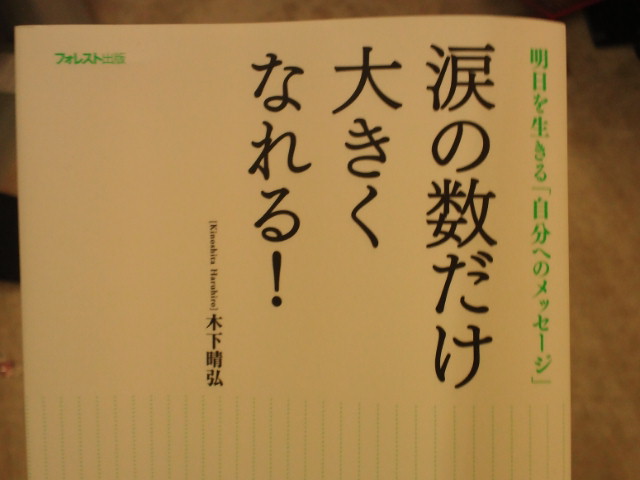 明日を生きる「自分へのメッセージ」
涙の数だけ
大きく
なれる!
[Kinoshita Haruhiro]木下晴弘
フォレスト出版